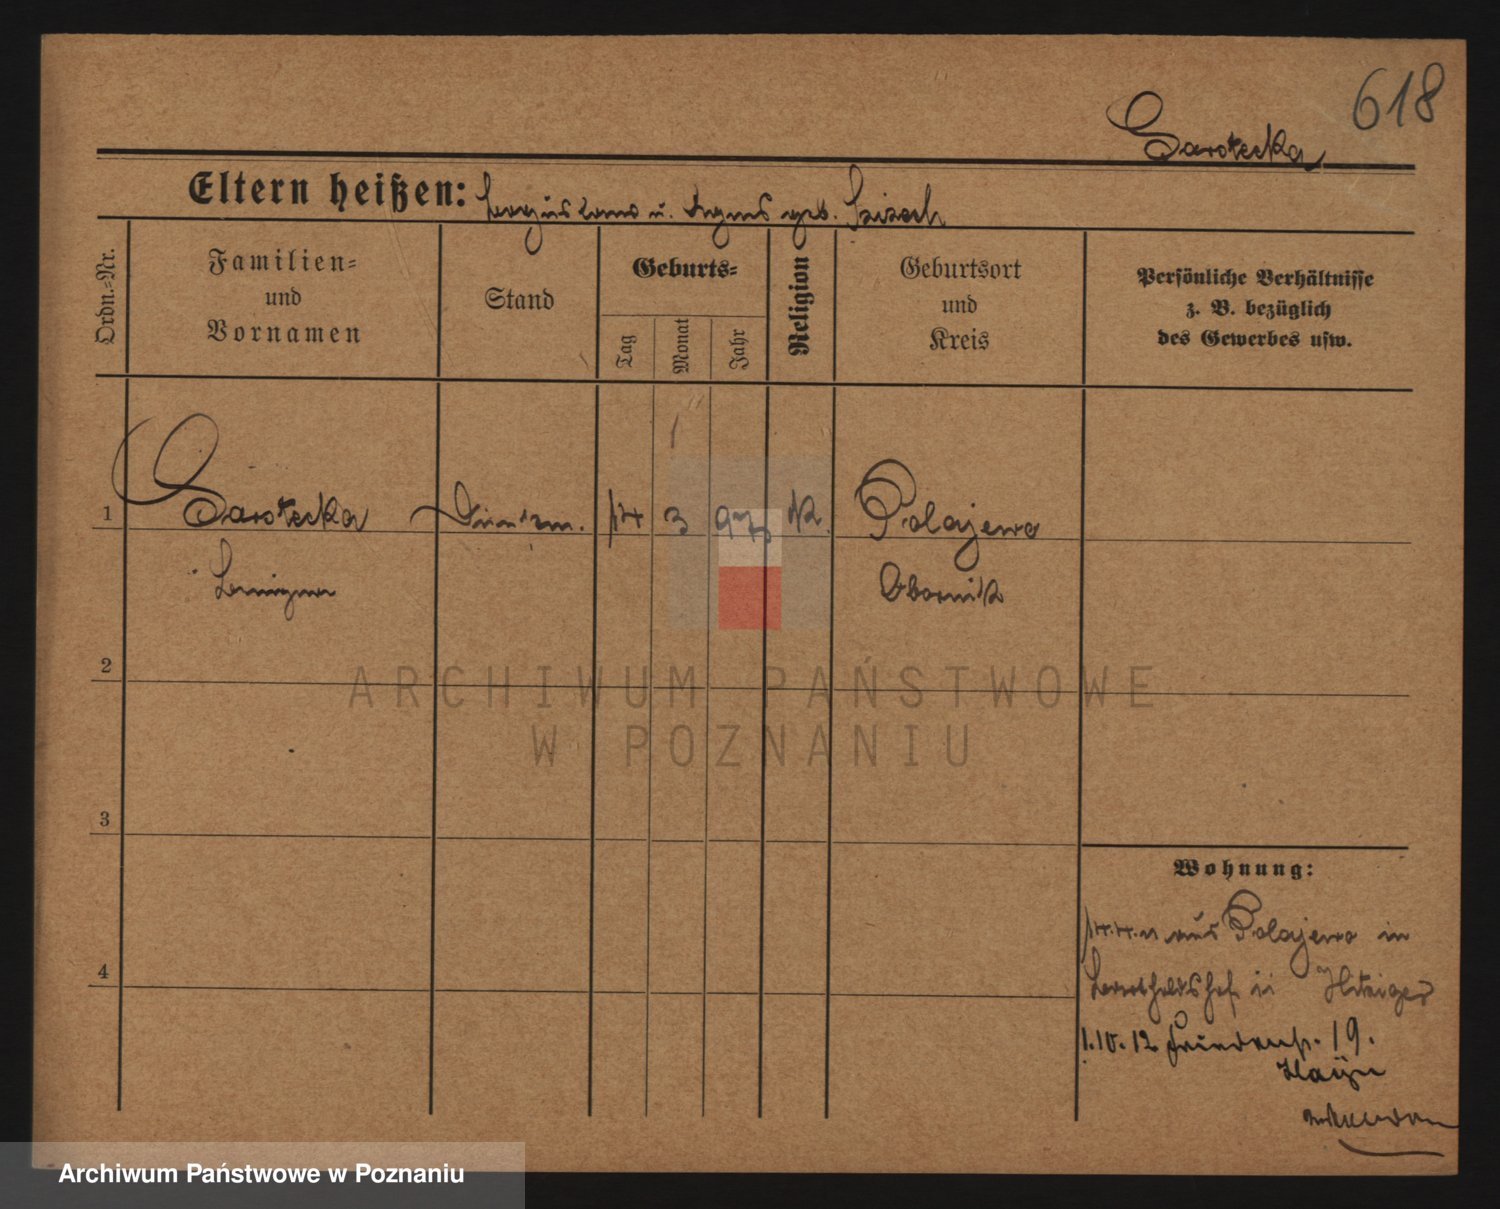 618
Sarotecka
Eltern heißen: u. Agnes geb.
Ordn.=Nr.
Familien=
und
Vornamen
Stand
Geburts=
Tag
Monat
Jahr
Religion
Geburtsort
und
Kreis
Persönliche Verhältnisse
z. B. bezüglich
des Gewerbes usw.
1 Sarotecka 14 3 97 K. Polajewo
Obornik
2
3
4
Wohnung:
14.4.11 aus Polajewo in
1.10.12 19.
ARCHIWUM PAŃSTWOWE
W POZNANIU
Archiwum Państwowe w Poznaniu